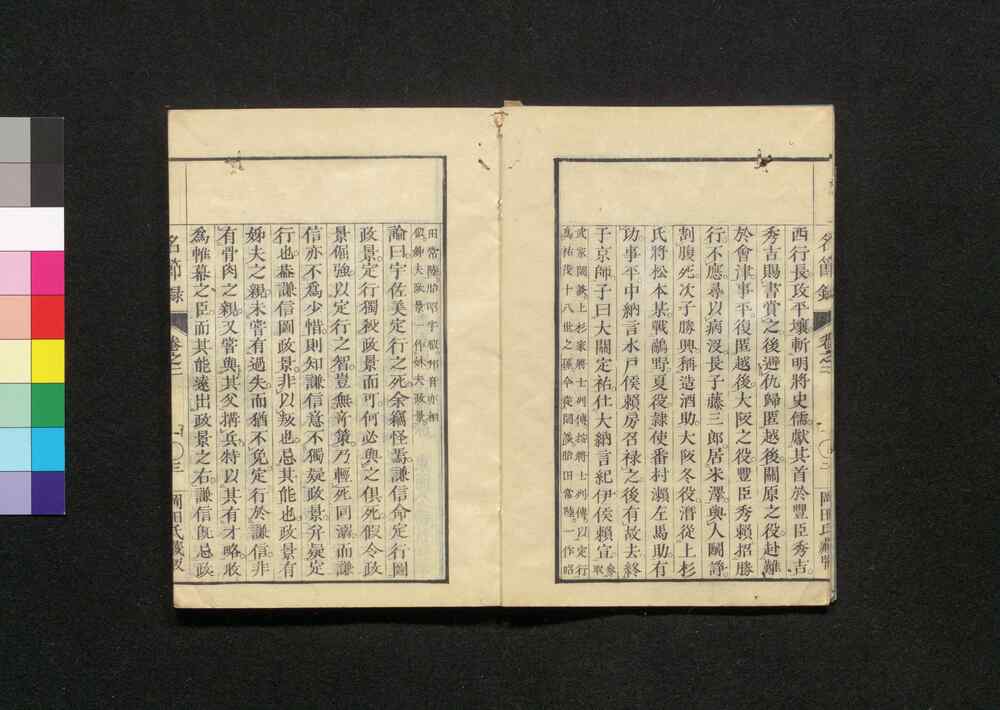 西行長攻平壤斬明將史儒獻其首於豐臣秀吉
秀吉賜書賞之後避仇歸匿越後關原之役赴難
於會津事平復匿越後大阪之役豐臣秀賴招勝
行不應尋以病沒長子藤三郎居米澤與人鬭諍
割腹死次子勝興稱造酒助大阪冬役潛從上杉
氏將松本基戰鴫野夏役隷使番村瀨左馬助有
功事平中納言水戶侯賴房召祿之後有故去終
于京師子曰大關定祐仕大納言紀伊侯賴宣參取
武家閑談上杉家將士列傳按將士列傳以定行
爲祐茂十八世之孫今從閑談胎田常陸一作昭
名節錄
卷之二
岡田氏藏版
田常陸胎昭字
假姊夫政景一作妹夫政景
論曰宇佐美定行之死余竊怪焉謙信命定行圖
政景定行獨殺政景而可何必與之俱死假令政
景倔強以定行之智豈無奇策乃輕死同溺而謙
信亦不爲少惜則知謙信意不獨疑政景幷疑定
行也蓋謙信圖政景非以叛也忌其能也政景有
姊夫之親未嘗有過失而猶不免定行於謙信非
有骨肉之親又嘗與其父搆兵特以其有才略收
爲帷幕之臣而其能遠出政景之右謙信旣忌政
名節錄
卷之二
岡田氏藏版